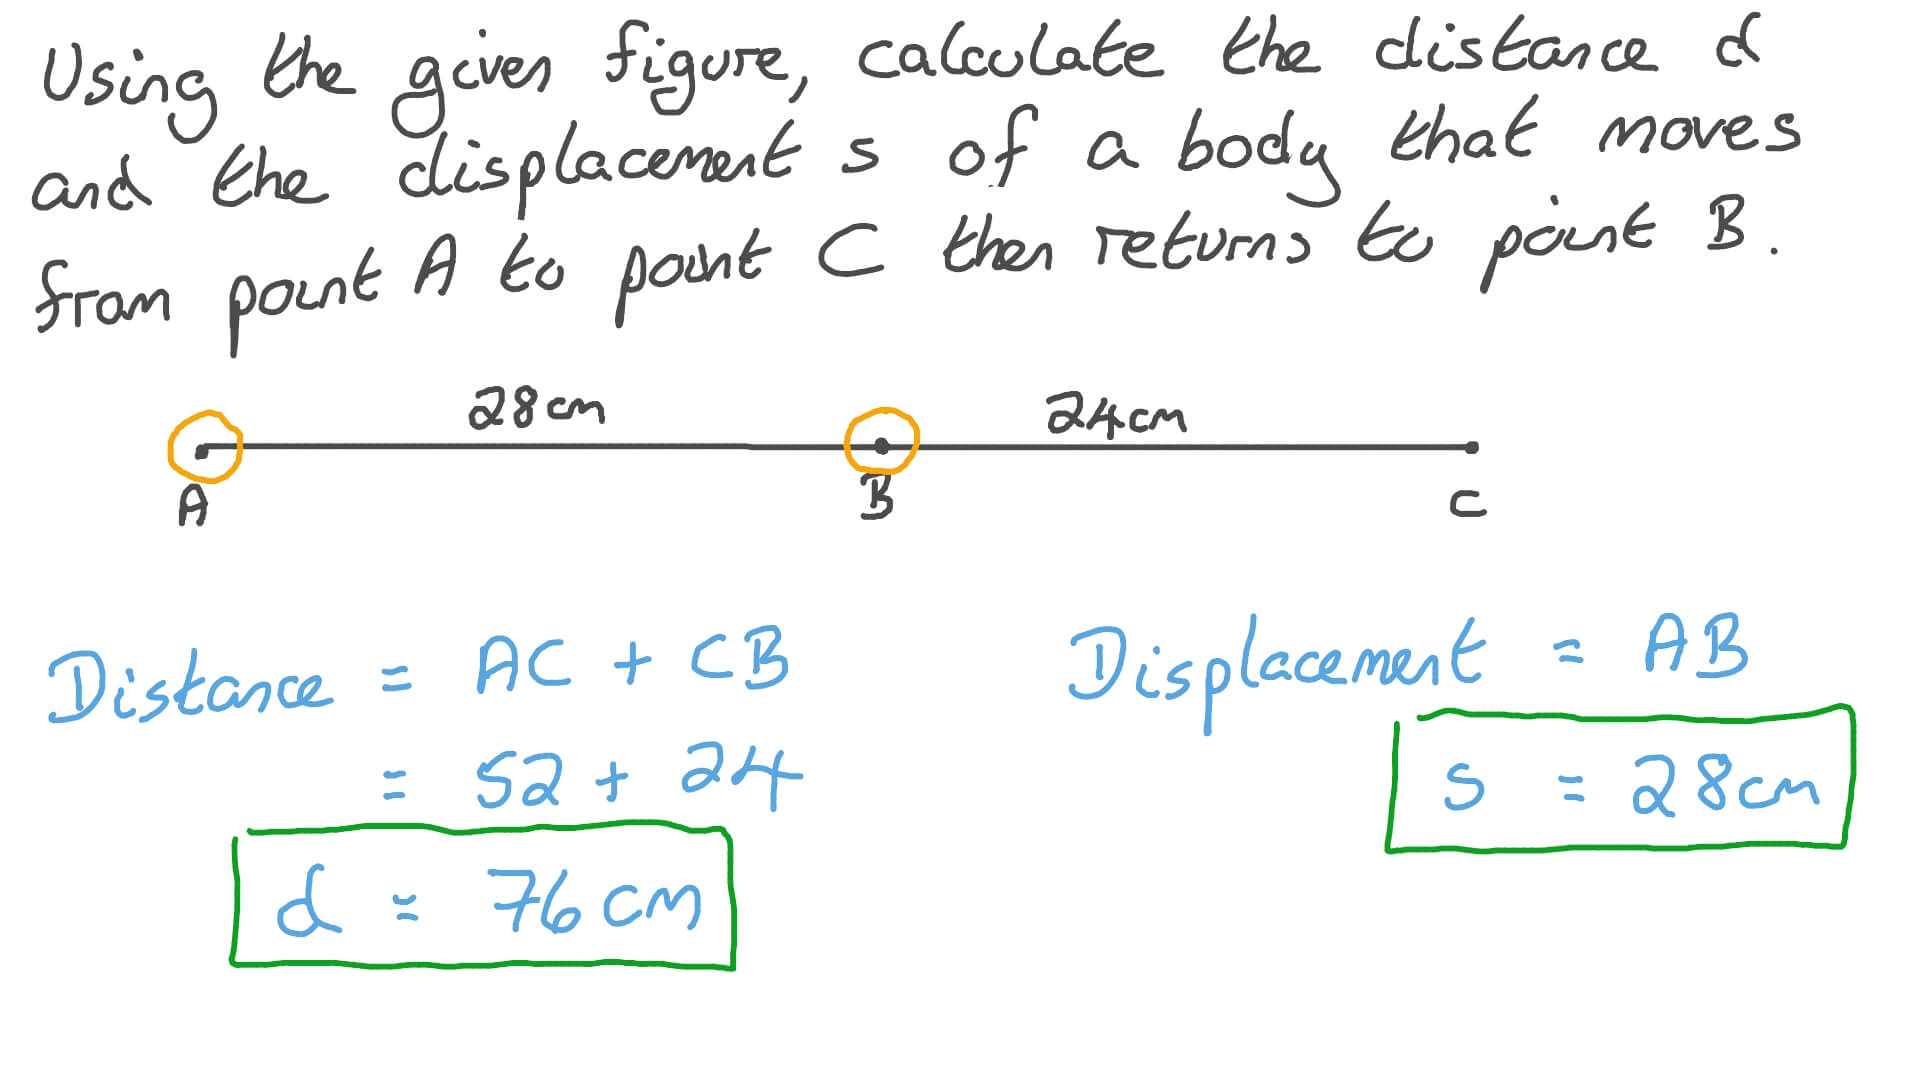 Using the given figure, calculate the distance d
and the displacement s of a body that moves
from point A to point C then returns to point B.
28cm 24cm
A B C
Distance = AC + CB
= 52 + 24
d = 76 cm
Displacement = AB
s = 28cm